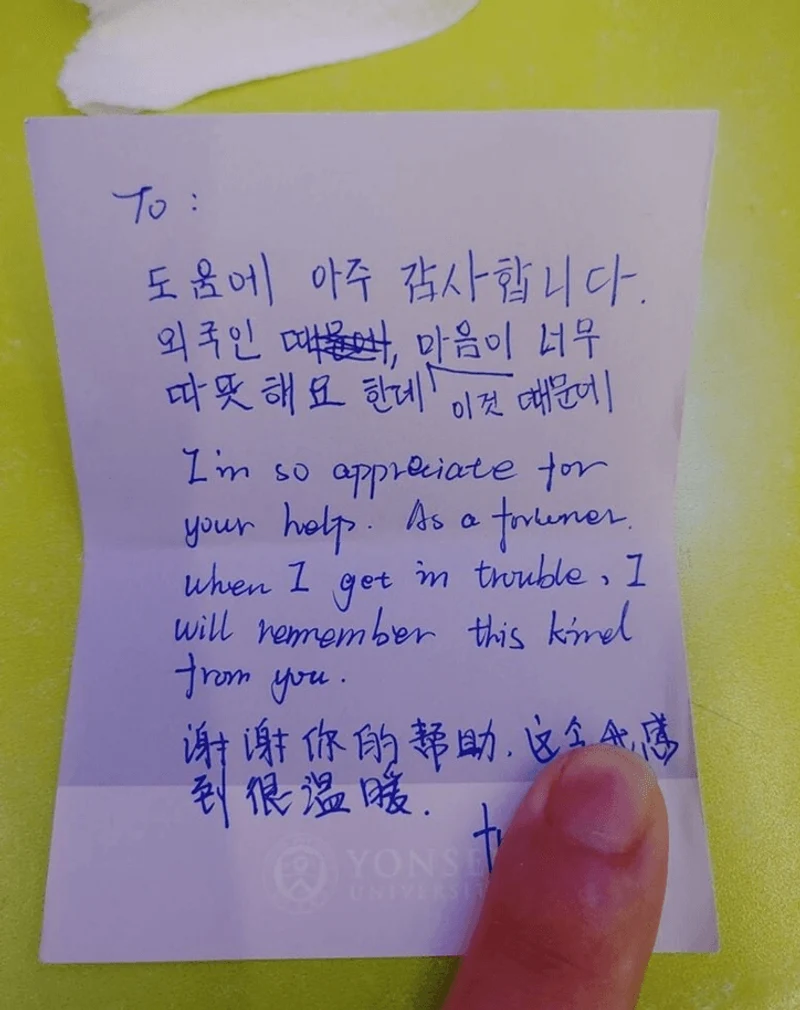 To :
도움에 아주 감사합니다.
외국인 때문에, 마음이 너무
따뜻해요 한데 이것 때문에
I'm so appreciate for
your help. As a foriener.
when I get in trouble, I
will remember this kind
from you.
谢谢你的帮助. 这令我感
到很温暖.
YONSE
UNIVERSIT